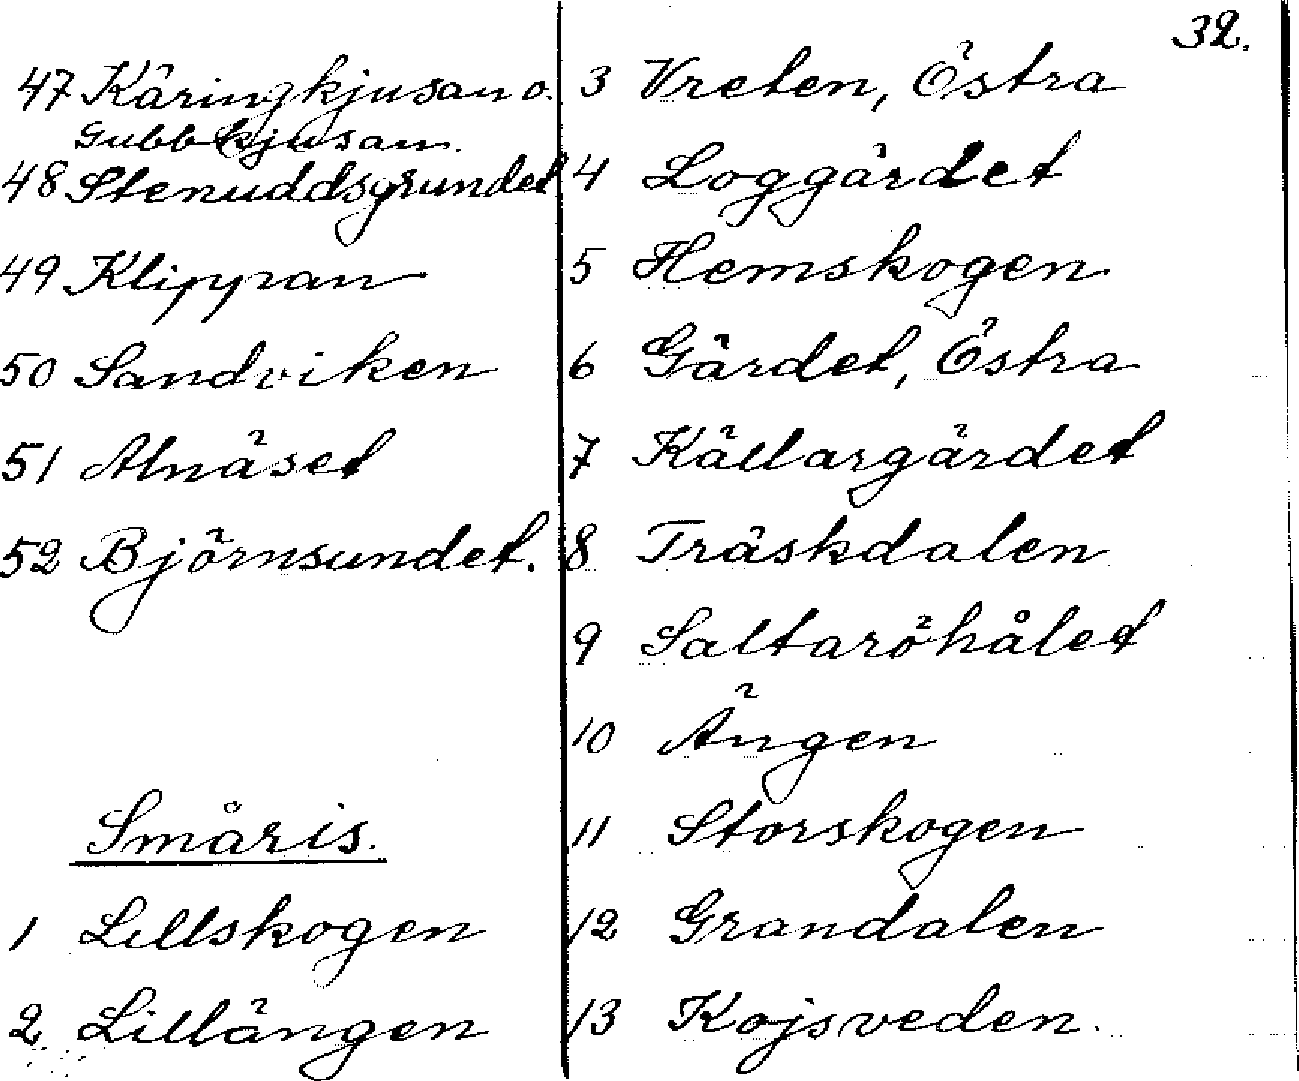 32.
47 Käringkjusan o.
Gubbkjusan.
48 Stenuddsgrundet
49 Klippan
50 Sandviken
51 Alnäset
52 Björnsundet.
Småris.
1 Lillskogen
2 Lillängen
3 Vreten, Östra
4 Loggärdet
5 Hemskogen
6 Gärdet, Östra
7 Källargärdet
8 Träskdalen
9 Saltaröhålet
10 Ängen
11 Storskogen
12 Grandalen
13 Kojsveden